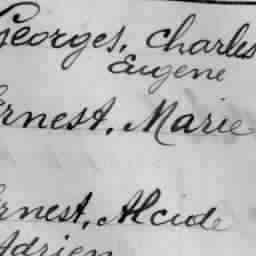 Georges, Charles
Eugene
Ernest, Marie
Ernest, Alcide
Adrien